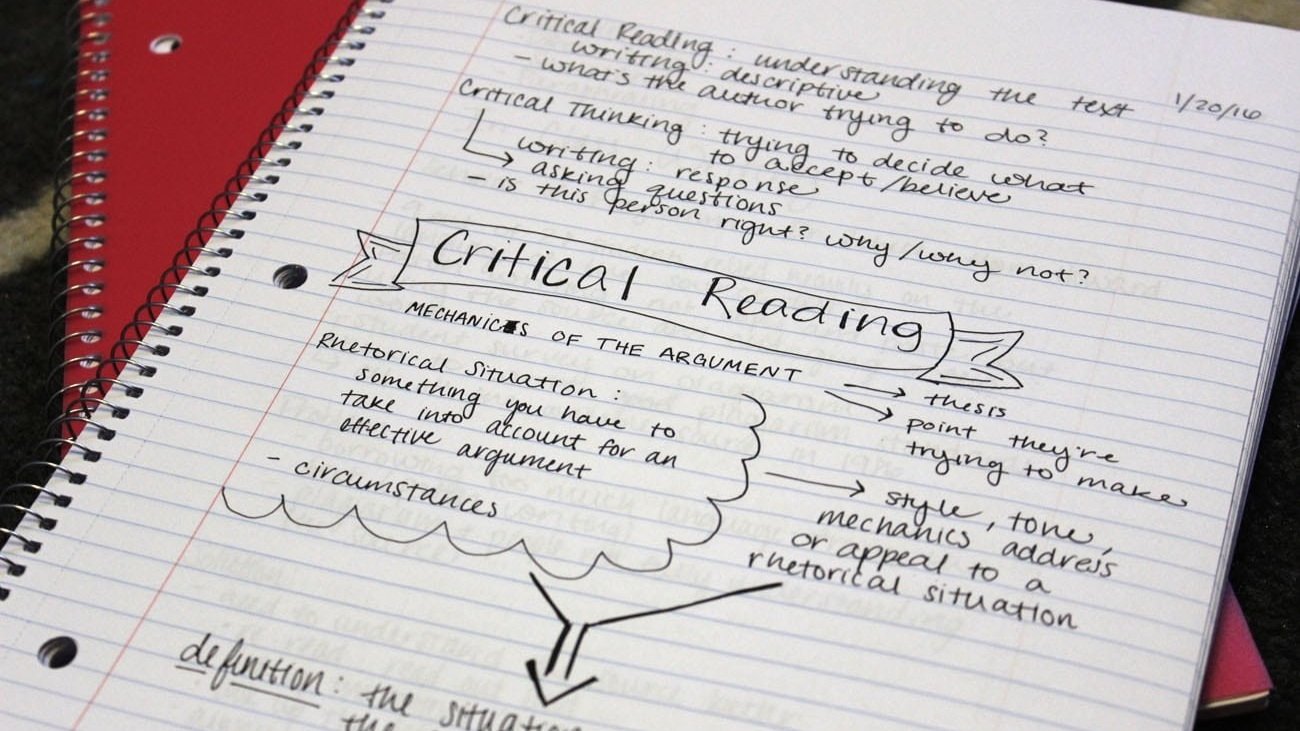 1/20/16
Critical Reading: understanding the text
writing: descriptive
- what's the author trying to do?
Critical Thinking: trying to decide what
to accept/believe
writing: response
asking questions
- is this person right? why/why not?
Critical Reading
MECHANICS OF THE ARGUMENT
→ thesis
→ point they're
trying to make
Rhetorical Situation:
something you have to
take into account for an
effective argument
- circumstances
→ style, tone,
mechanics address
or appeal to a
rhetorical situation
definition: the situation
the